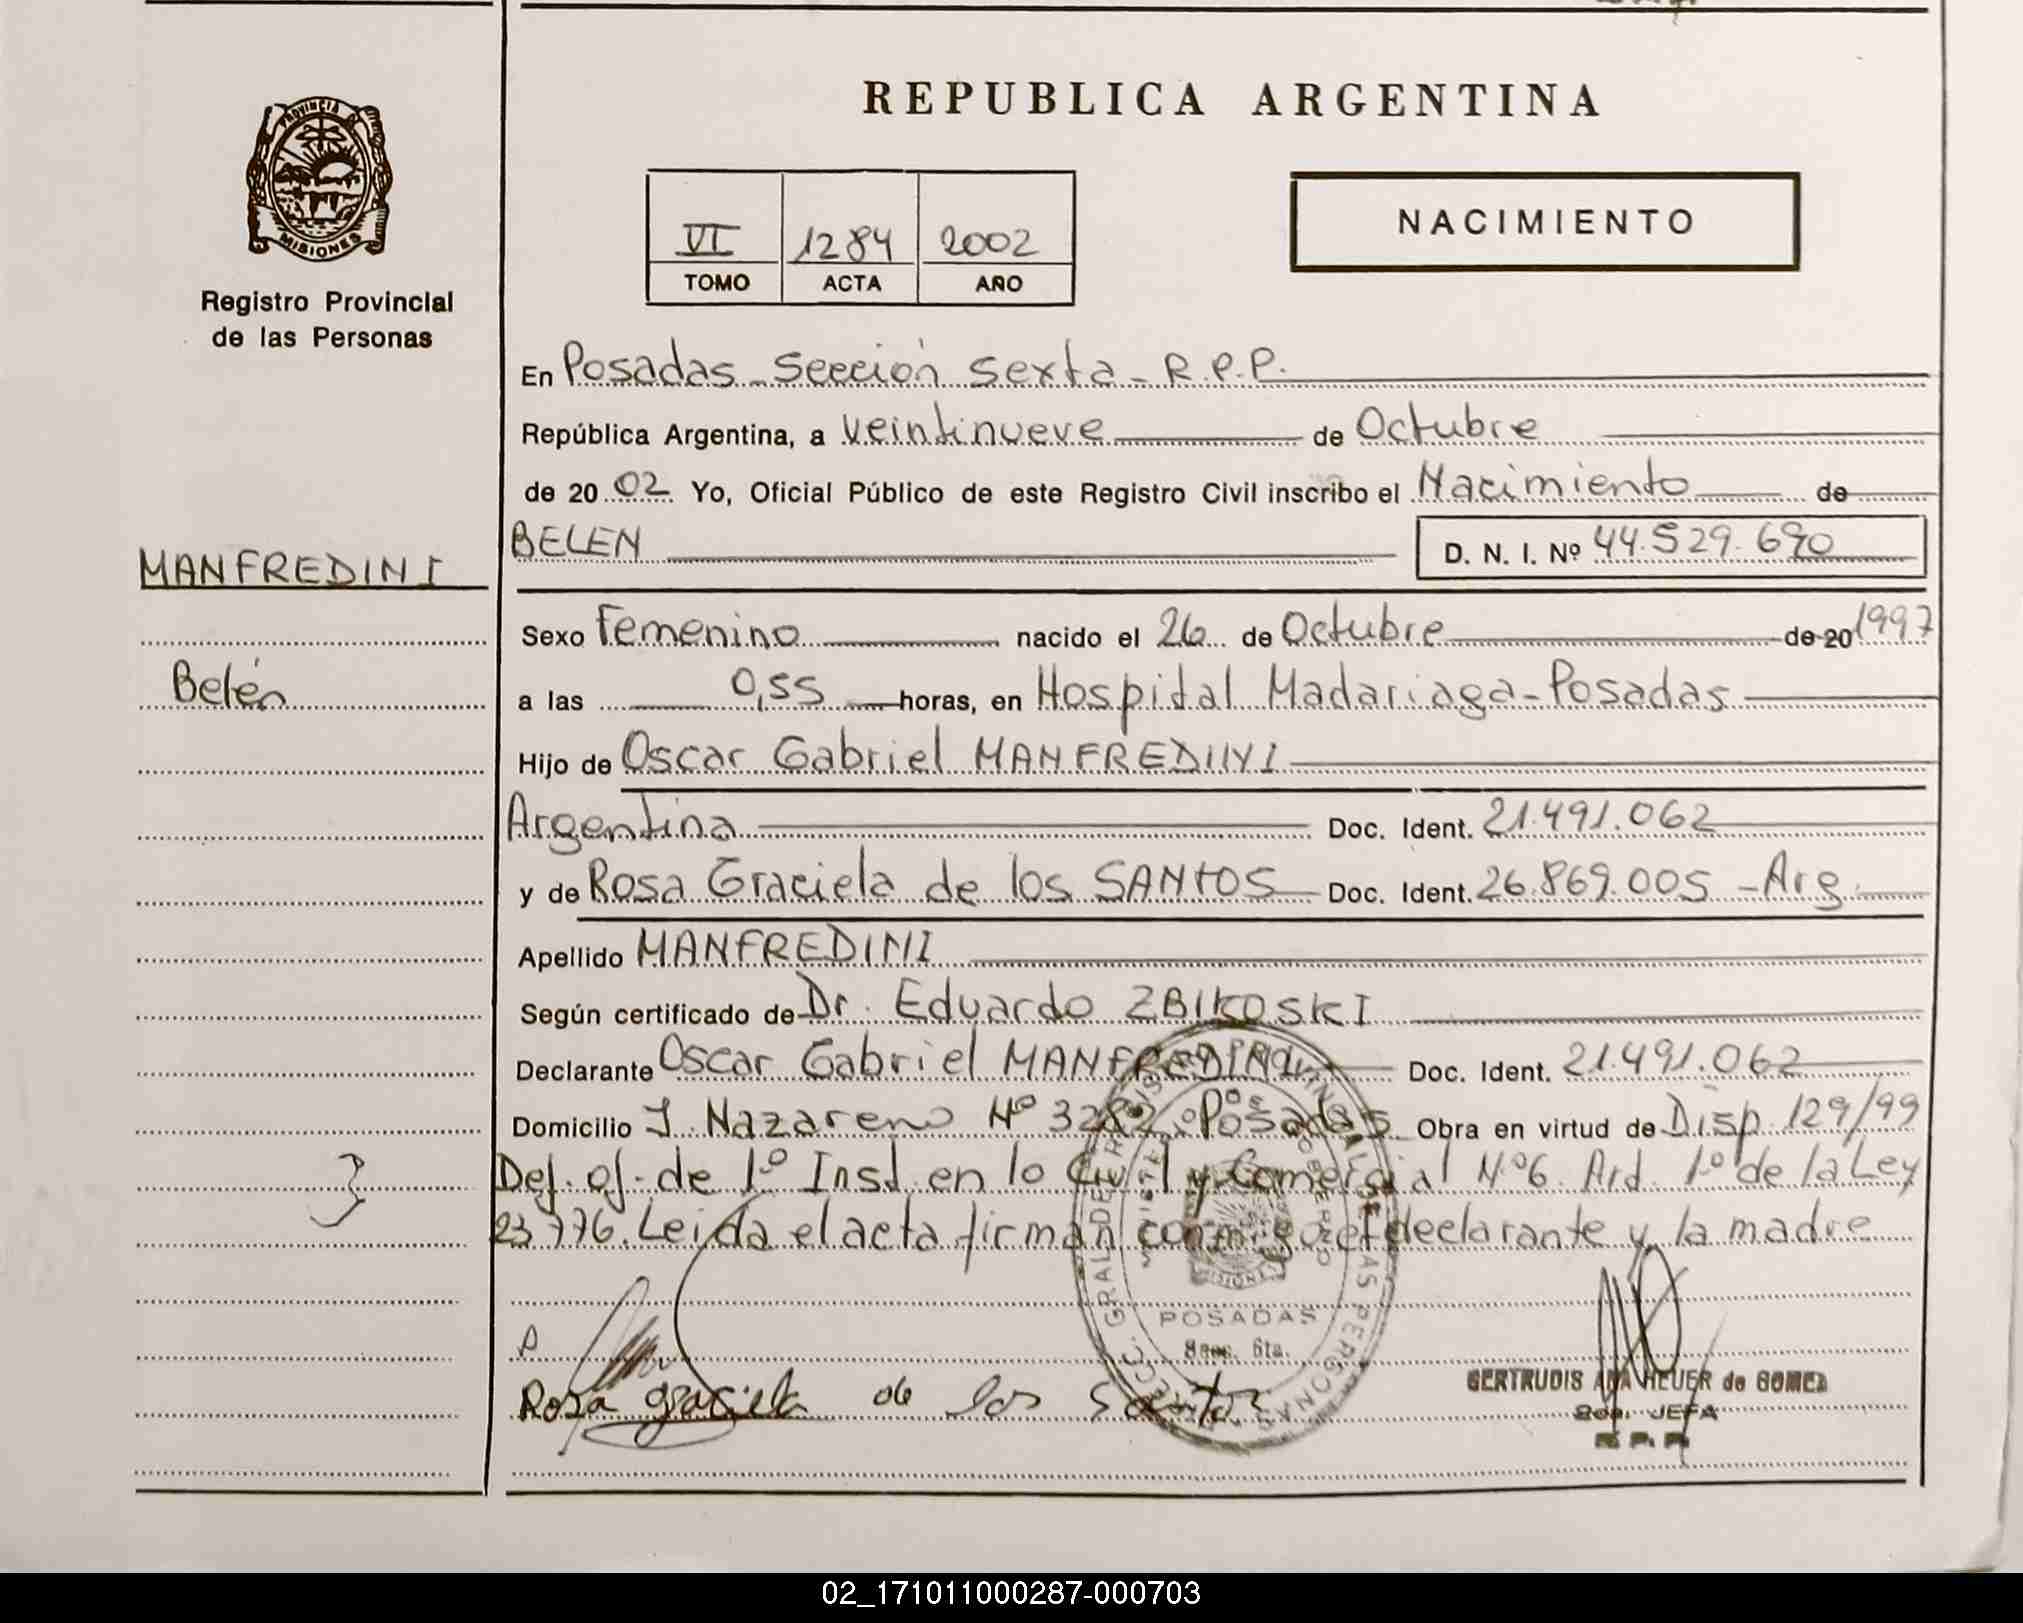 REPUBLICA ARGENTINA
PROVINCIA DE
MISIONES
Registro Provincial
de las Personas
VI 1284 2002
TOMO ACTA AÑO
NACIMIENTO
En Posadas - Sección Sexta - R.P.P.
República Argentina, a veintinueve de Octubre
de 2002 Yo, Oficial Público de este Registro Civil inscribo el Nacimiento de
BELEN D. N. I. Nº 44.529.690
MANFREDINI
Sexo Femenino nacido el 26 de Octubre de 20 1997
Belén
a las 0,55 horas, en Hospital Madariaga - Posadas
Hijo de Oscar Gabriel MANFREDINI
Argentina Doc. Ident. 21.491.062
y de Rosa Graciela de los SANTOS Doc. Ident. 26.869.005 - Arg.
Apellido MANFREDINI
Según certificado de Dr. Eduardo ZBIKOSKI
Declarante Oscar Gabriel MANFREDINI Doc. Ident. 21.491.062
Domicilio J. Nazareno Nº 3282 Posadas Obra en virtud de Disp. 129/99
Def. of. de 1º Inst. en lo Civil y Comercial Nº 6. Art. 1º de la Ley
23.776. Leida el acta firman conmigo el declarante y la madre
POSADAS
Secc. 6ta.
Rosa graciela de los Santos
GERTRUDIS ANA HEUER de GOMEZ
JEFA
R.P.P.
02_171011000287-000703